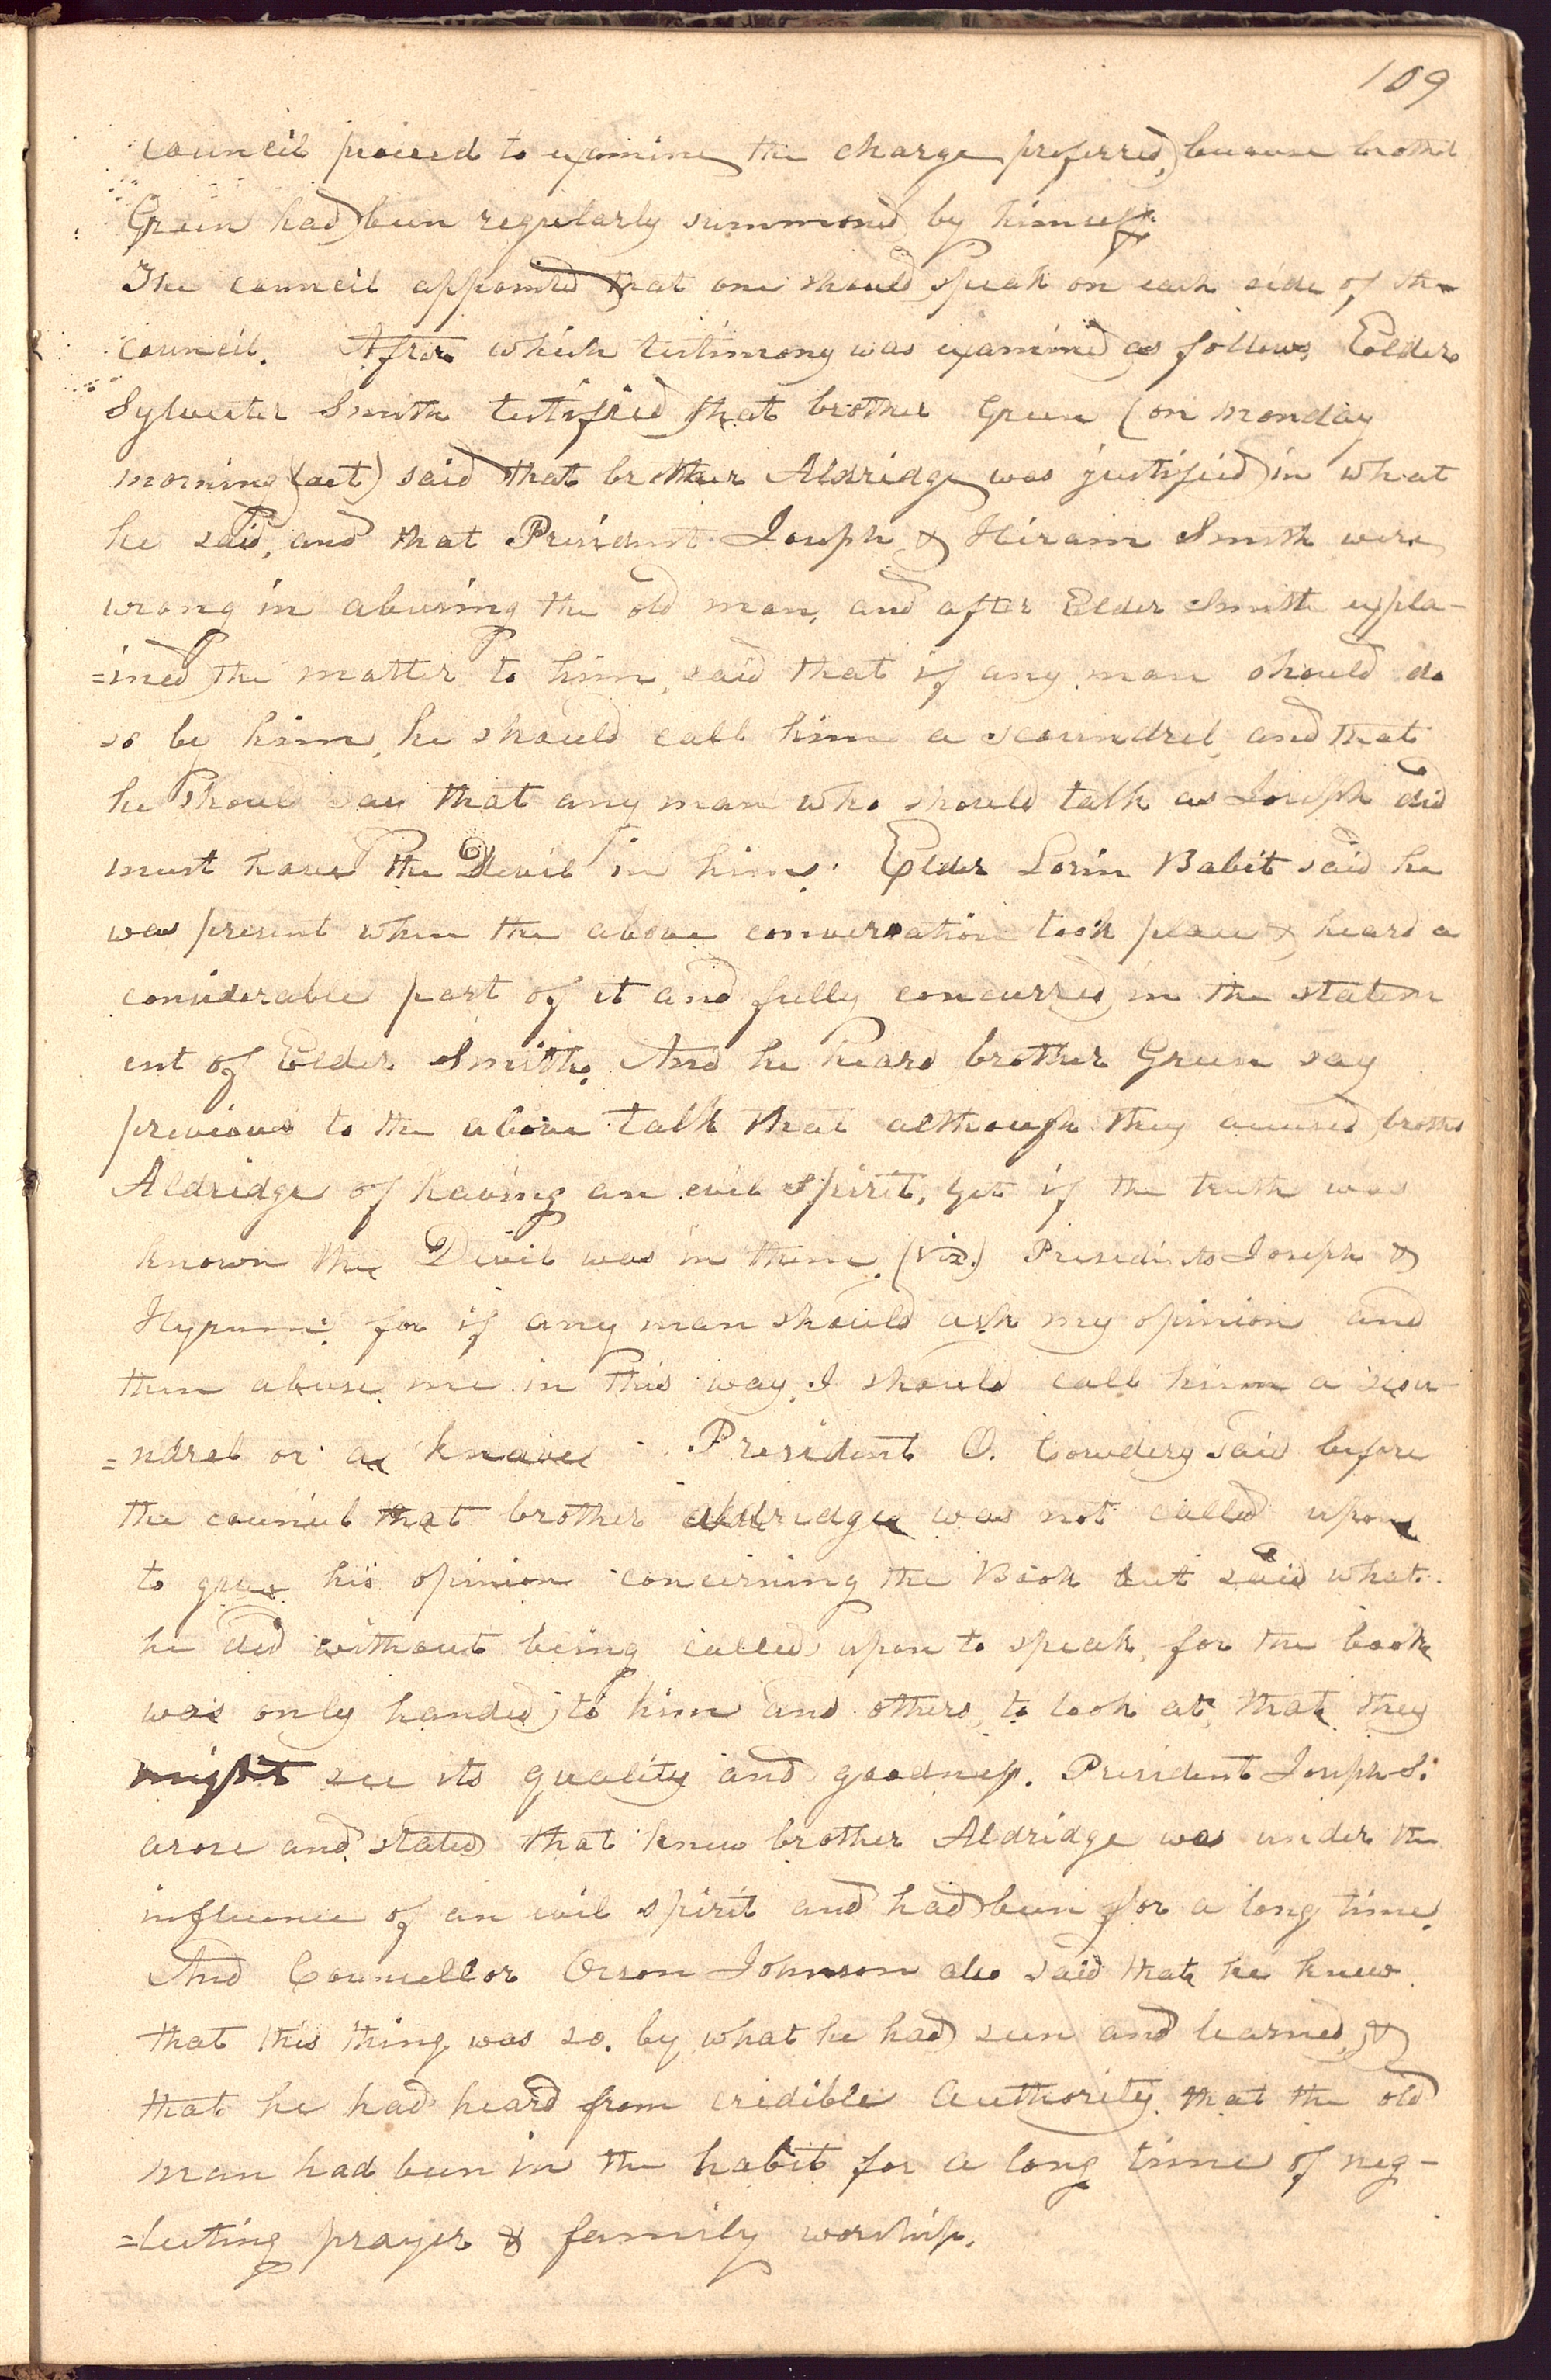 109
council proceed to examine the charge preferred, because brother
Green had been regularly summoned by himself.
The council appointed that one should speak on each side of the
council. After which testimony was examined as follows, Eolders
Sylvester Smith testified that brother Green (on monday
morning (act) said that brother Aldridge was justified in what
he said, and that President Joseph & Hiram Smith were
wrong in abusing the old man, and after Elder Smith expla-
=ined the matter to him, said that if any man should do
so by him, he should call him a scoundrel, and that
he should say that any man who should talk as Joseph did
must have the Devil in him. Elder Lorin Babit said he
was present when the above conversation took place & heard a
considerable part of it and fully concurred in the statem
ent of Elder Smith. And he heard brother Green say
previous to the above talk that although they accused brother
Aldridge of having an evil spirit, yet if the truth was
known the Devil was in them, (viz.) Presedints Joseph &
Hyrum: for if any man should ask my opinion and
then abuse me in this way, I should call him a scou-
=ndrel or a knave. President O. Cowdery said before
the council that brother aldridge was not called upon
to give his opinion concerning the Book but said what
he did without being called upon to speak, for the book
was only handed to him and others, to look at, that they
might see its quality and goodness. President Joseph S.
arose and stated that knew brother Aldridge was under the
influence of an evil spirit and had been for a long time.
And Councellor Orson Johnson also said that he knew
that this thing was so. by what he had seen and learned, &
that he had heard from credible authority that the old
man had been in the habit for a long time of neg-
=lecting prayer & family worship.